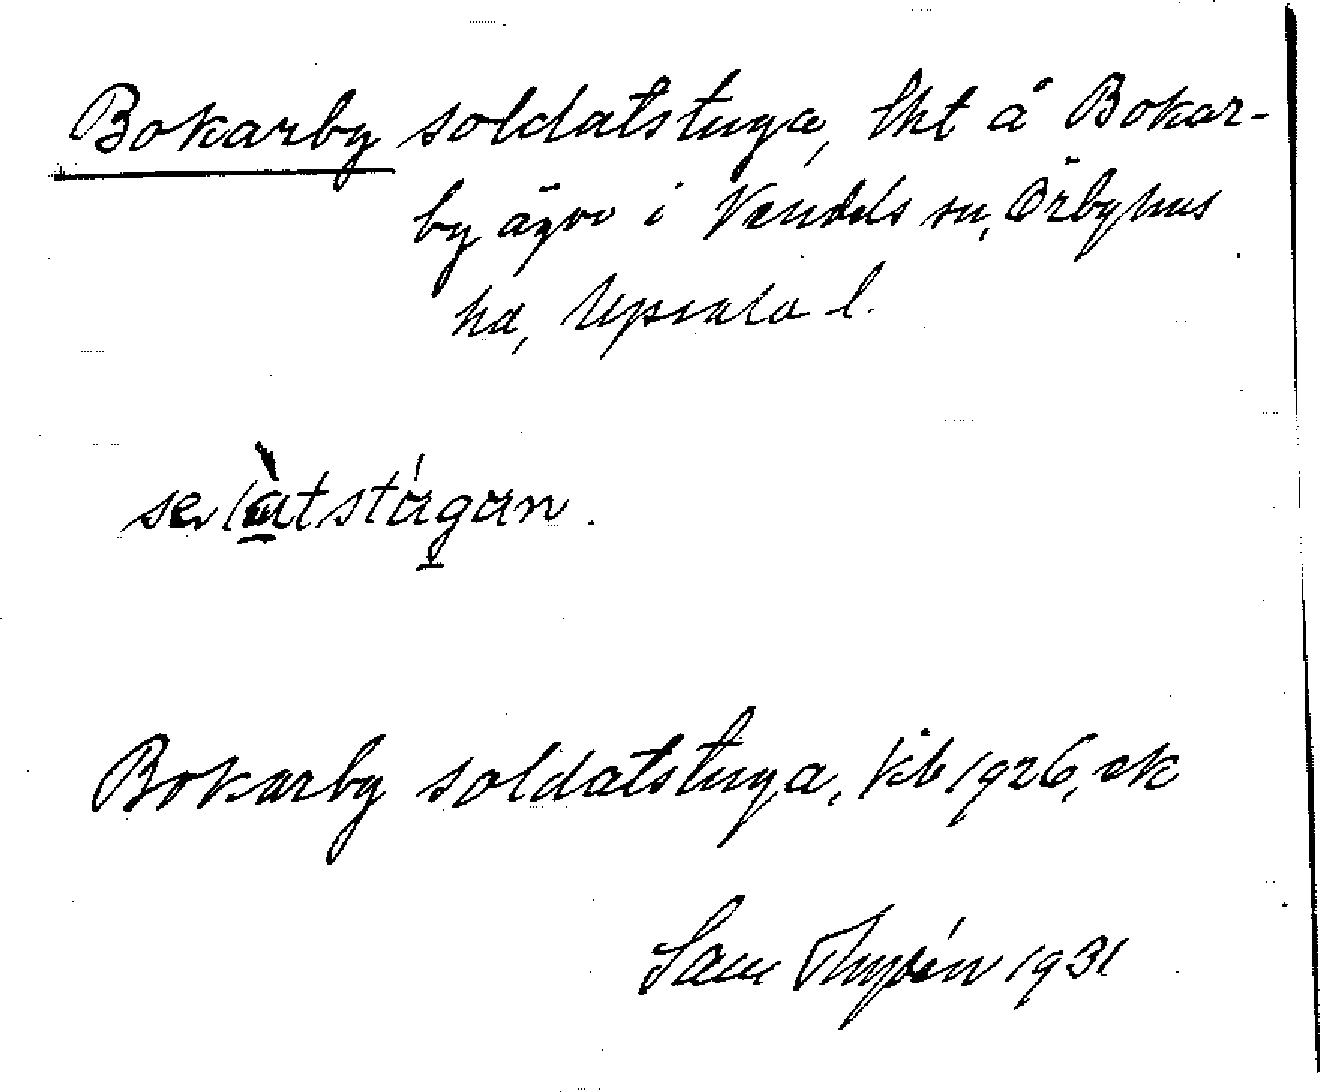 Bokarby soldatstuga, lht å Bokar-
by ägor i Vendels sn, Örbyhus
hd, Upsala l.
Bokarby soldatstuga, Kb 1926, ek
Sam 1931